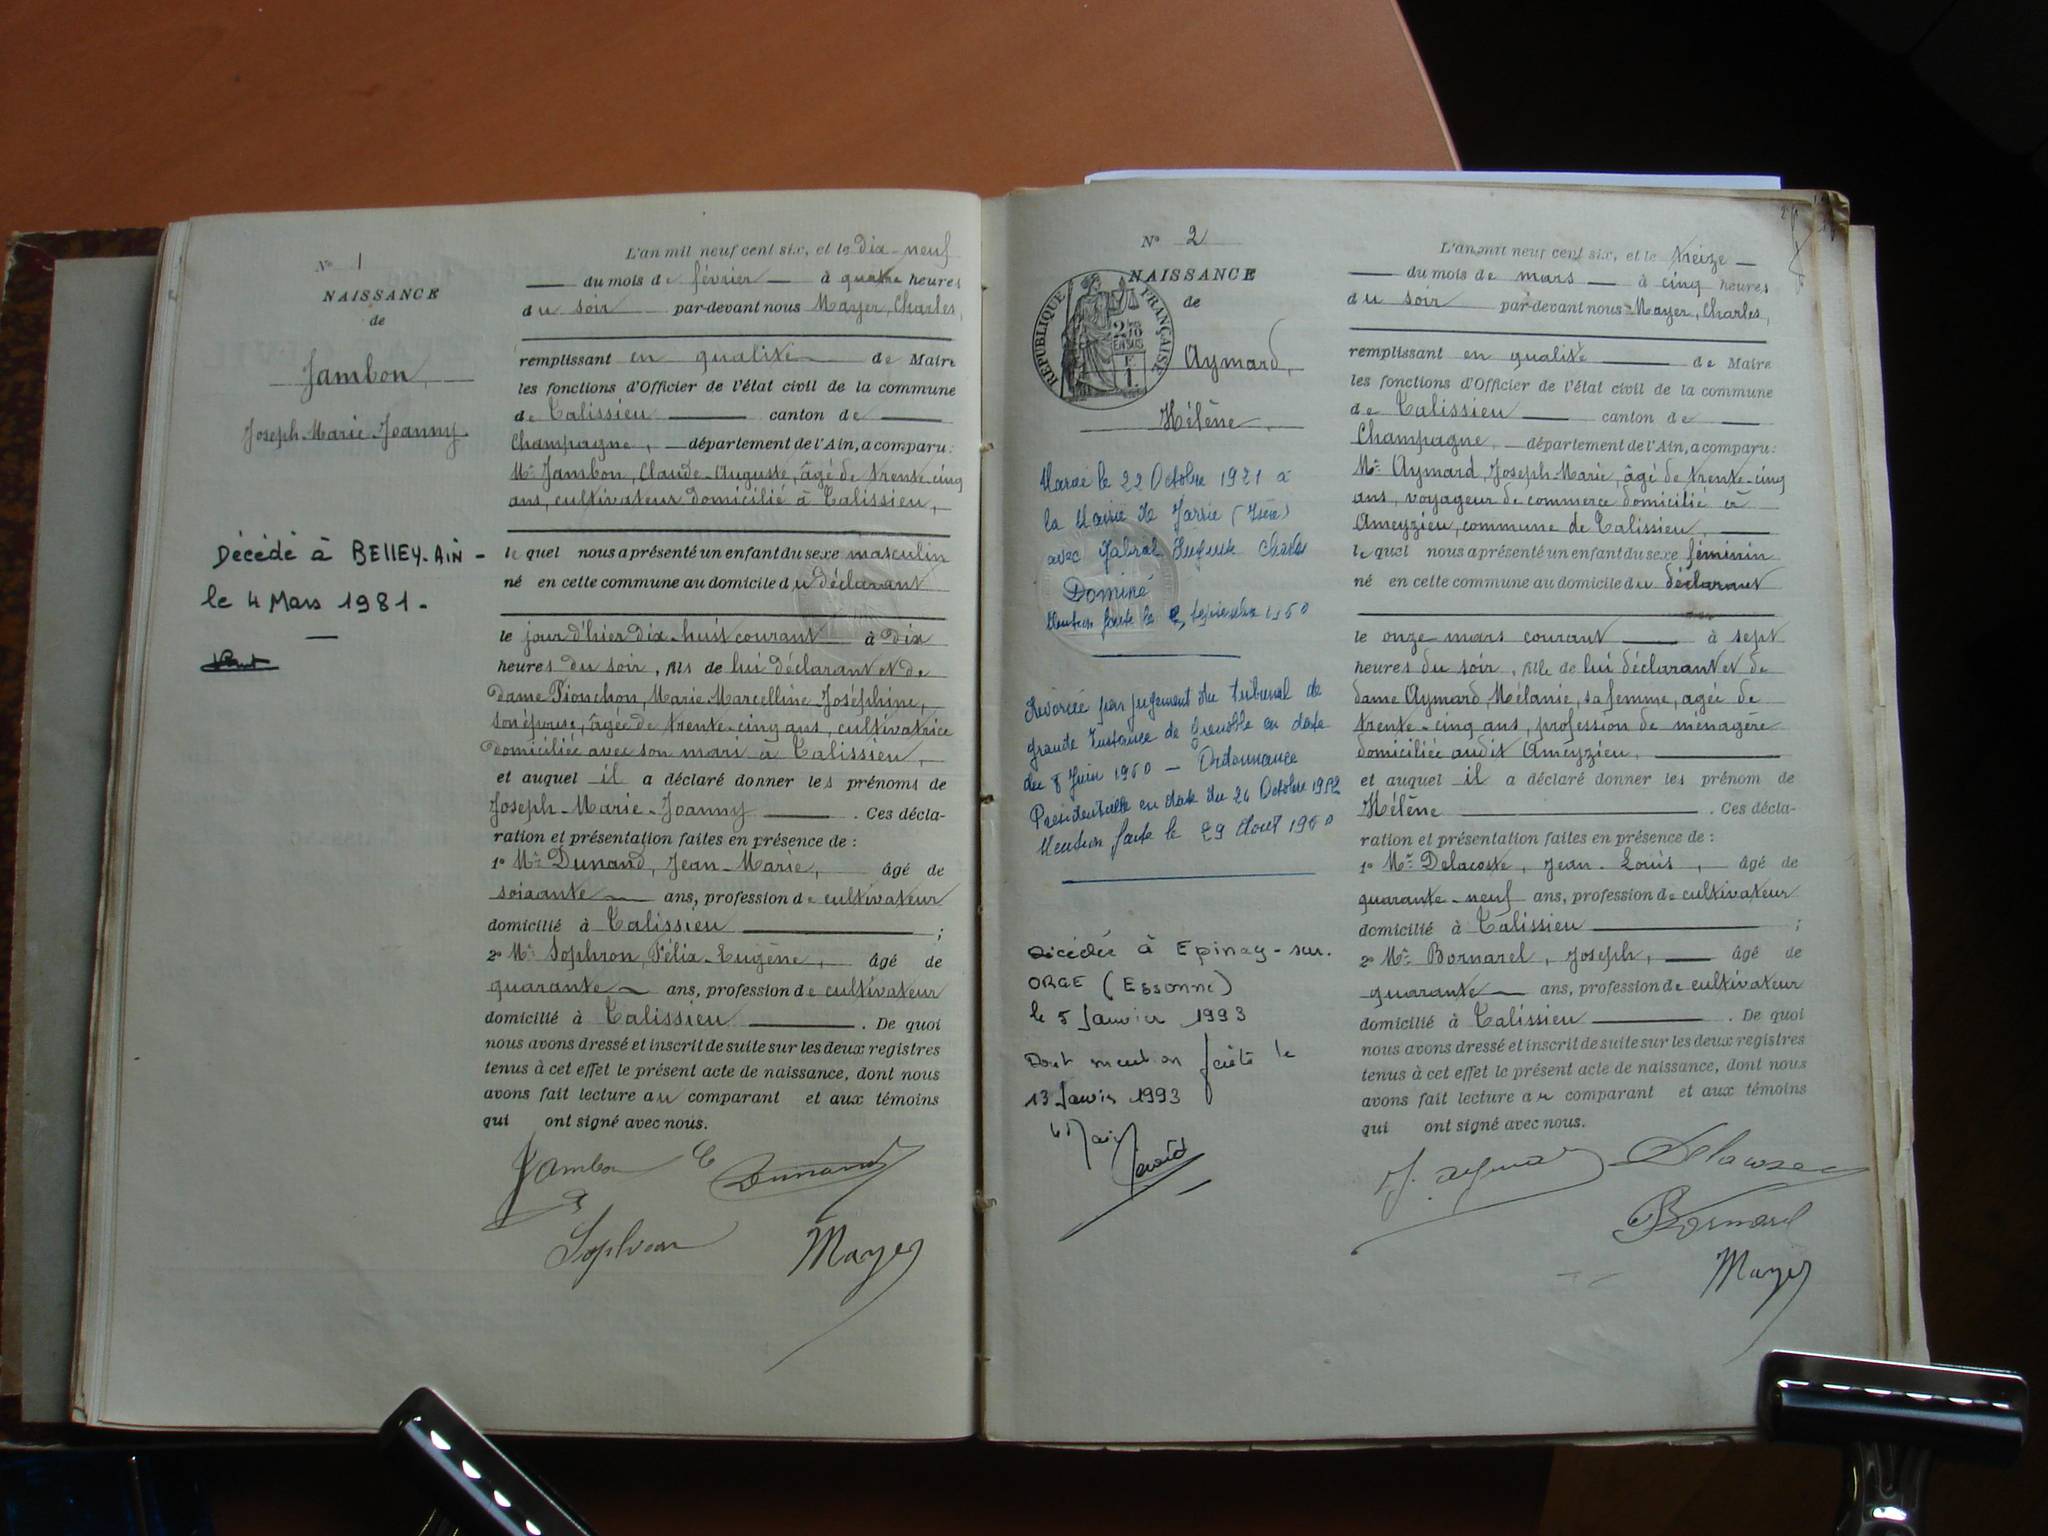 N° 1
NAISSANCE
de
Jambon,
Joseph-Marie-Joanny
Décédé à BELLEY-AIN -
le 4 Mars 1981.
L'an mil neuf cent six, et le dix-neuf
du mois de février à quatre heures
du soir par-devant nous Mayer, Charles,
remplissant en qualité de Maire
les fonctions d'Officier de l'état civil de la commune
de Talissieu canton de
Champagne, département de l'Ain, a comparu:
Mr Jambon, Claude-Auguste, âgé de trente-cinq
ans, cultivateur domicilié à Talissieu,
le quel nous a présenté un enfant du sexe masculin
né en cette commune au domicile du déclarant
le jour d'hier dix-huit courant à dix
heures du soir, fils de lui déclarant et de
dame Pionchon, Marie Marcelline Joséphine,
son épouse, âgée de trente-cinq ans, cultivatrice
domiciliée avec son mari à Talissieu,
et auquel il a déclaré donner les prénoms de
Joseph-Marie-Joanny . Ces décla-
ration et présentation faites en présence de :
1° Mr Dunand, Jean-Marie, âgé de
soixante ans, profession de cultivateur
domicilié à Talissieu ;
2° Mr Sophron, Félix-Eugène, âgé de
quarante ans, profession de cultivateur
domicilié à Talissieu . De quoi
nous avons dressé et inscrit de suite sur les deux registres
tenus à cet effet le présent acte de naissance, dont nous
avons fait lecture au comparant et aux témoins
qui ont signé avec nous.
Jambon C Dunand
Sophron Mayer
N° 2
NAISSANCE
de
RÉPUBLIQUE FRANÇAISE
Aymard,
Hélène,
Mariée le 22 Octobre 1921 à
la Mairie de Jarrie (Isère)
avec Jabral Auguste Charles
Dominé
Mention faite le Septembre 1960
Divorcée par jugement du tribunal de
grande Instance de Grenoble en date
du 8 Juin 1960 — Ordonnance
Présidentielle en date du 26 Octobre 1952
Mention faite le 29 Août 1960
Décédée à Epinay-sur-
ORGE (Essonne)
le 5 Janvier 1993
Dont mention faite le
13 Janvier 1993
L'an mil neuf cent six, et le treize
du mois de mars à cinq heures
du soir par-devant nous Mayer, Charles,
remplissant en qualité de Maire
les fonctions d'Officier de l'état civil de la commune
de Talissieu canton de
Champagne département de l'Ain, a comparu:
Mr Aymard, Joseph-Marie, âgé de trente-cinq
ans, voyageur de commerce domicilié à
Ameyzieu, commune de Talissieu,
le quel nous a présenté un enfant du sexe féminin
né en cette commune au domicile du déclarant
le onze mars courant à sept
heures du soir, fille de lui déclarant et de
dame Aymard Mélanie, sa femme, agée de
trente-cinq ans, profession de ménagère
domiciliée audit Ameyzieu,
et auquel il a déclaré donner les prénom de
Hélène . Ces décla-
ration et présentation faites en présence de :
1° Mr Delacoste, Jean-Louis, âgé de
quarante-neuf ans, profession de cultivateur
domicilié à Talissieu ;
2° Mr Bornarel, Joseph, âgé de
quarante ans, profession de cultivateur
domicilié à Talissieu . De quoi
nous avons dressé et inscrit de suite sur les deux registres
tenus à cet effet le présent acte de naissance, dont nous
avons fait lecture au comparant et aux témoins
qui ont signé avec nous.
J. Aymard Delacoste
Bornarel
Mayer